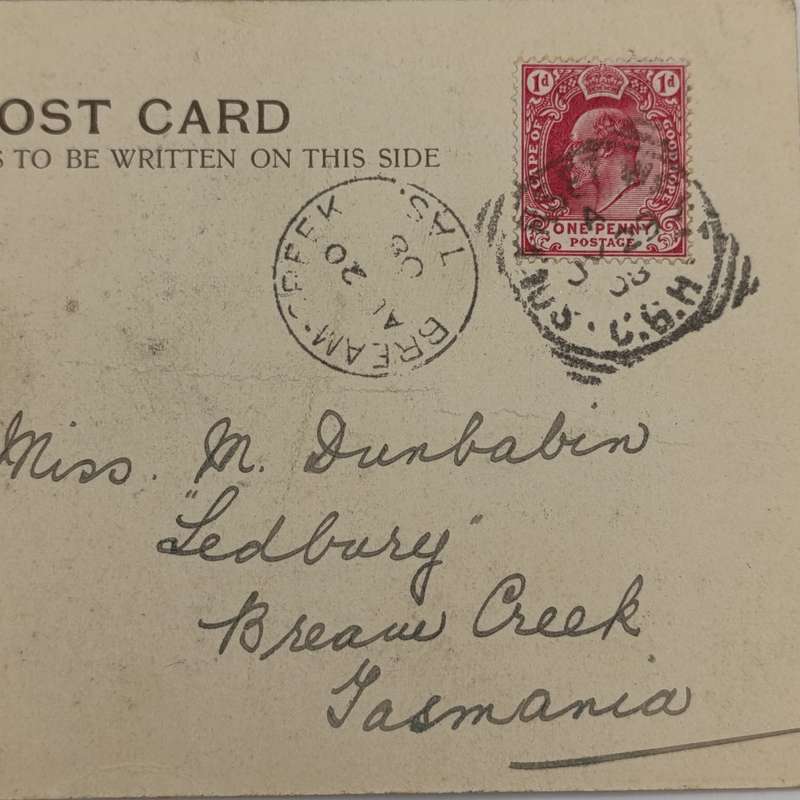 OST CARD
S TO BE WRITTEN ON THIS SIDE
1d 1d
CAPE OF GOOD HOPE
ONE PENNY
POSTAGE
BREAM CREEK TAS.
AU 20
08
C.G.H
08
Miss. M. Dunbabin
"Ledbury"
Bream Creek
Tasmania